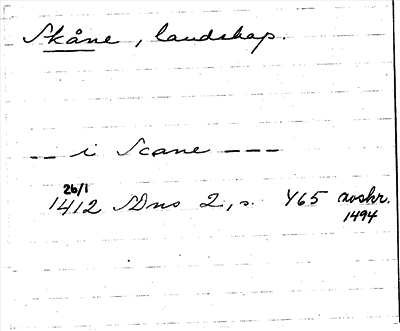 Skåne, landskap.
-- i Scane ---
26/1
1412 SDns 2, s. 465 avskr.
1494